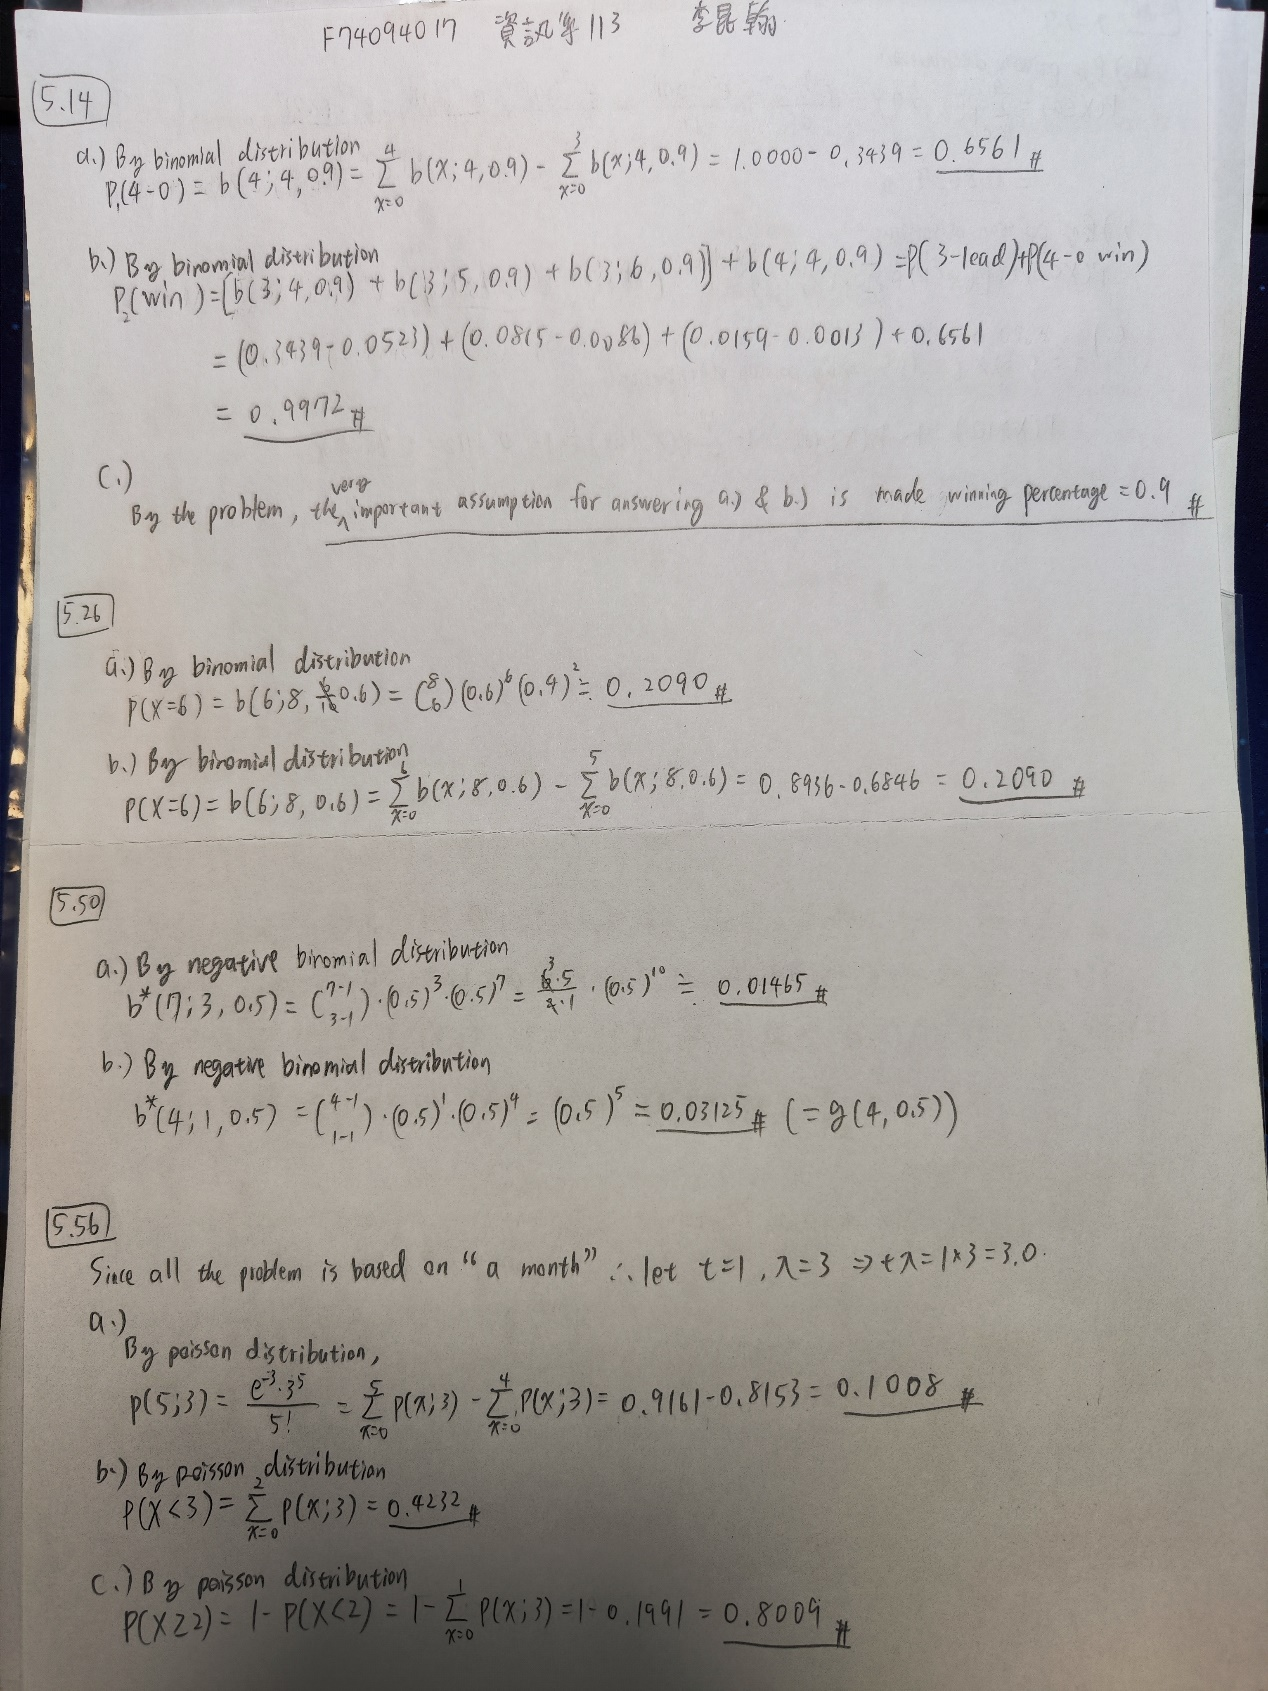 F74094017 資訊系113 李昆翰
5.14
a.) By binomial distribution
P₁(4-0) = b(4;4,0.9) = \sum_{x=0}^{4} b(x;4,0.9) - \sum_{x=0}^{3} b(x;4,0.9) = 1.0000 - 0.3439 = 0.6561 #
b.) By binomial distribution
P₂(win) = [b(3;4,0.9) + b(3;5,0.9) + b(3;6,0.9)] + b(4;4,0.9) = P(3-lead)+P(4-0 win)
= (0.3439-0.0523) + (0.0815-0.0086) + (0.0159-0.0013) + 0.6561
= 0.9972 #
C.)
By the problem, the very important assumption for answering a.) & b.) is made winning percentage = 0.9 #
5.26
a.) By binomial distribution
P(X=6) = b(6;8, 0.6) = \binom{8}{6} (0.6)⁶ (0.4)² ≒ 0.2090 #
b.) By binomial distribution
P(X=6) = b(6;8, 0.6) = \sum_{x=0}^{6} b(x;8,0.6) - \sum_{x=0}^{5} b(x;8,0.6) = 0.8936-0.6846 = 0.2090 #
5.50
a.) By negative binomial distribution
b*(7;3, 0.5) = \binom{7-1}{3-1} · (0.5)³ · (0.5)⁷ = \frac{6·5}{2·1} · (0.5)¹⁰ ≒ 0.01465 #
b.) By negative binomial distribution
b*(4;1, 0.5) = \binom{4-1}{1-1} · (0.5)¹ · (0.5)⁴ = (0.5)⁵ = 0.03125 # (= g(4, 0.5))
5.56
Since all the problem is based on "a month" ∴ let t=1, λ=3 ⇒ tλ=1×3=3.0.
a.)
By poisson distribution,
p(5;3) = \frac{e⁻³·3⁵}{5!} = \sum_{x=0}^{5} P(x;3) - \sum_{x=0}^{4} P(x;3) = 0.9161-0.8153 = 0.1008 #
b.) By poisson distribution
P(X<3) = \sum_{x=0}^{2} P(x;3) = 0.4232 #
C.) By poisson distribution
P(X≥2) = 1 - P(X<2) = 1 - \sum_{x=0}^{1} P(x;3) = 1 - 0.1991 = 0.8009 #